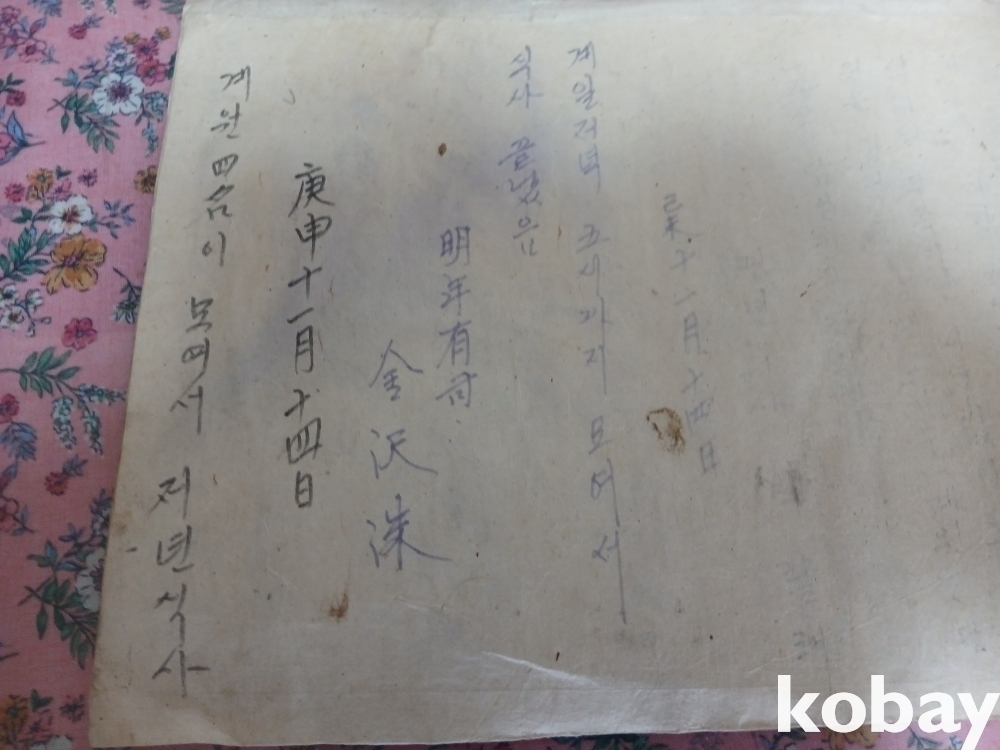 己未十一月十四日
계일저녁 五시까지 모여서
식사 끝났음
明年有司
金沢洙
庚申十一月十四日
계원 四名이 모여서 저년식사
kobay